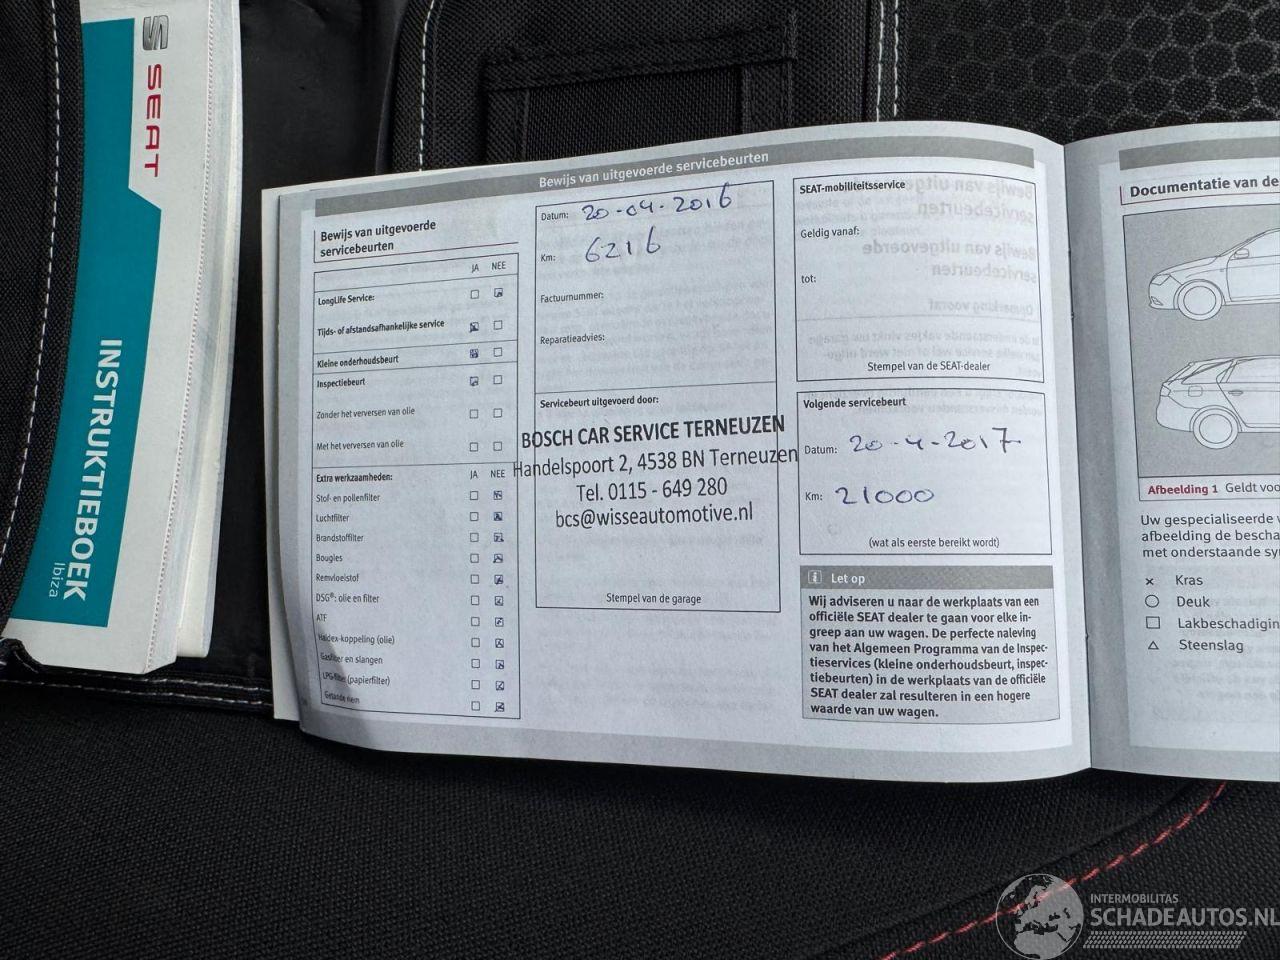 SEAT
INSTRUKTIEBOEK
Ibiza
Bewijs van uitgevoerde servicebeurten
Bewijs van uitgevoerde
servicebeurten
JA NEE
LongLife Service:
Tijds- of afstandsafhankelijke service
Kleine onderhoudsbeurt
Inspectiebeurt
Zonder het verversen van olie
Met het verversen van olie
Extra werkzaamheden: JA NEE
Stof- en pollenfilter
Luchtfilter
Brandstoffilter
Bougies
Remvloeistof
DSG®: olie en filter
ATF
Haldex-koppeling (olie)
Gasfilter en slangen
LPG-filter (papierfilter)
Getande riem
Datum: 20-04-2016
Km: 6216
Factuurnummer:
Reparatieadvies:
Servicebeurt uitgevoerd door:
BOSCH CAR SERVICE TERNEUZEN
Handelspoort 2, 4538 BN Terneuzen
Tel. 0115 - 649 280
bcs@wisseautomotive.nl
Stempel van de garage
SEAT-mobiliteitsservice
Geldig vanaf:
tot:
Stempel van de SEAT-dealer
Volgende servicebeurt
Datum: 20-4-2017
Km: 21000
(wat als eerste bereikt wordt)
i Let op
Wij adviseren u naar de werkplaats van een
officiële SEAT dealer te gaan voor elke in-
greep aan uw wagen. De perfecte naleving
van het Algemeen Programma van de Inspec-
tieservices (kleine onderhoudsbeurt, inspec-
tiebeurten) in de werkplaats van de officiële
SEAT dealer zal resulteren in een hogere
waarde van uw wagen.
Documentatie van de
Afbeelding 1 Geldt voo
Uw gespecialiseerde
afbeelding de bescha
met onderstaande sy
× Kras
○ Deuk
□ Lakbeschadigin
△ Steenslag
INTERMOBILITAS
SCHADEAUTOS.NL